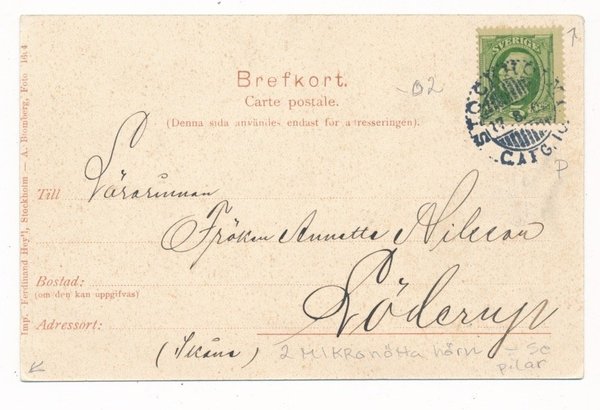 SVERIGE
STOCKHOLM
Brefkort.
-02
Carte postale.
(Denna sida användes endast för adresseringen).
Till Lärarinnan
Fröken Annette Nilsson
Bostad:
(om den kan uppgifvas)
Adressort: Löderup
(Skåne)
2 MIKRONÖTTA hörn - se
pilar
P
Imp. Ferdinand Hey'l, Stockholm — A. Blomberg, Foto